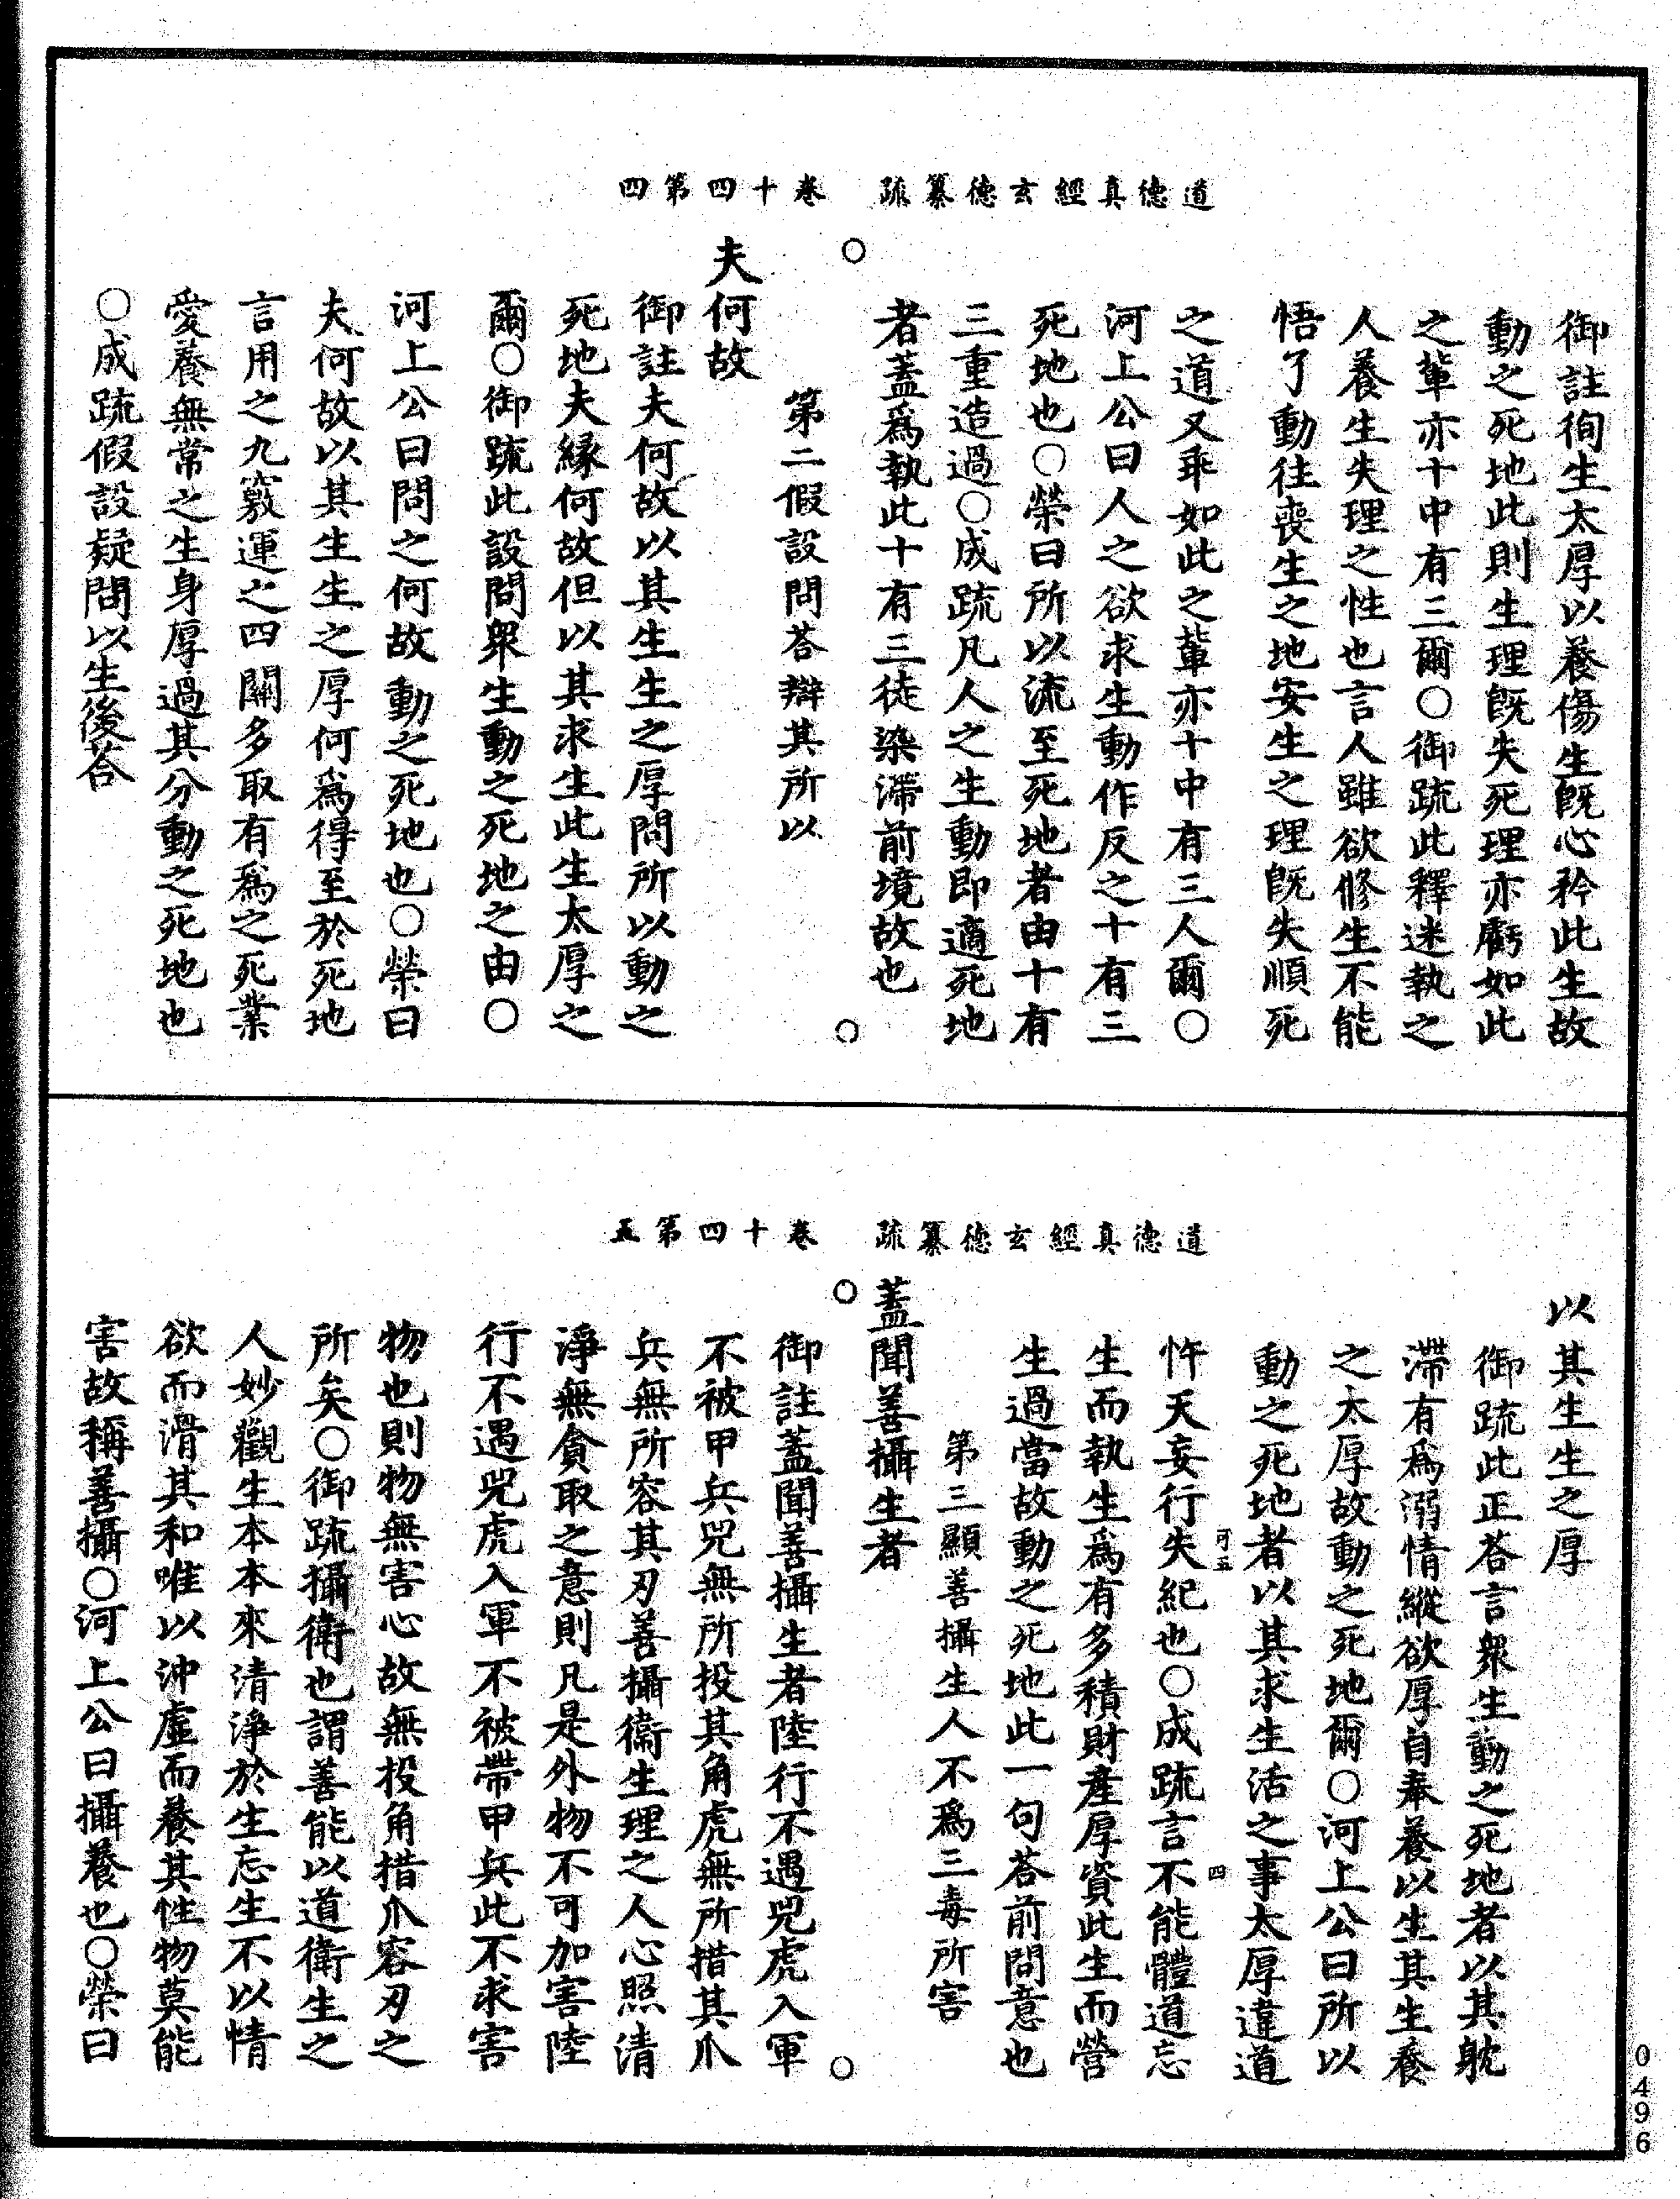 道德真經玄德纂疏　卷十四第四
御註徇生太厚以養傷生旣心矜此生故
動之死地此則生理旣失死理亦虧如此
之輩亦十中有三爾○御疏此釋迷執之
人養生失理之性也言人雖欲脩生不能
悟了動往喪生之地安生之理旣失順死
之道又乖如此之輩亦十中有三人爾○
河上公曰人之欲求生動作反之十有三
死地也○榮曰所以流至死地者由十有
三重造過○成疏凡人之生動即適死地
者蓋爲執此十有三徒染滯前境故也
○　○
第二假設問荅辯其所以
夫何故
御註夫何故以其生生之厚問所以動之
死地夫緣何故但以其求生此生太厚之
爾○御疏此設問衆生動之死地之由○
河上公曰問之何故動之死地也○榮曰
夫何故以其生生之厚何爲得至於死地
言用之九竅運之四關多取有爲之死業
愛養無常之生身厚過其分動之死地也
○成疏假設疑問以生後荅
道德真經玄德纂疏　卷十四第五
以其生生之厚
御疏此正荅言衆生動之死地者以其躭
滯有爲溺情縱欲厚自奉養以生其生養
之太厚故動之死地爾○河上公曰所以
動之死地者以其求生活之事太厚違道
忤天妄行失紀也○成疏言不能體道忘
可五
四
生而執生爲有多積財產厚資此生而營
生過當故動之死地此一句荅前問意也
第三顯善攝生人不爲三毒所害
蓋聞善攝生者
○　○
御註蓋聞善攝生者陸行不遇兕虎入軍
不被甲兵兕無所投其角虎無所措其爪
兵無所容其刃善攝衞生理之人心照清
淨無貪取之意則凡是外物不可加害陸
行不遇兕虎入軍不被帶甲兵此不求害
物也則物無害心故無投角措爪容刃之
所矣○御疏攝衛也謂善能以道衛生之
人妙觀生本本來清淨於生忘生不以情
欲而滑其和唯以沖虛而養其性物莫能
害故稱善攝○河上公曰攝養也○榮曰
0496